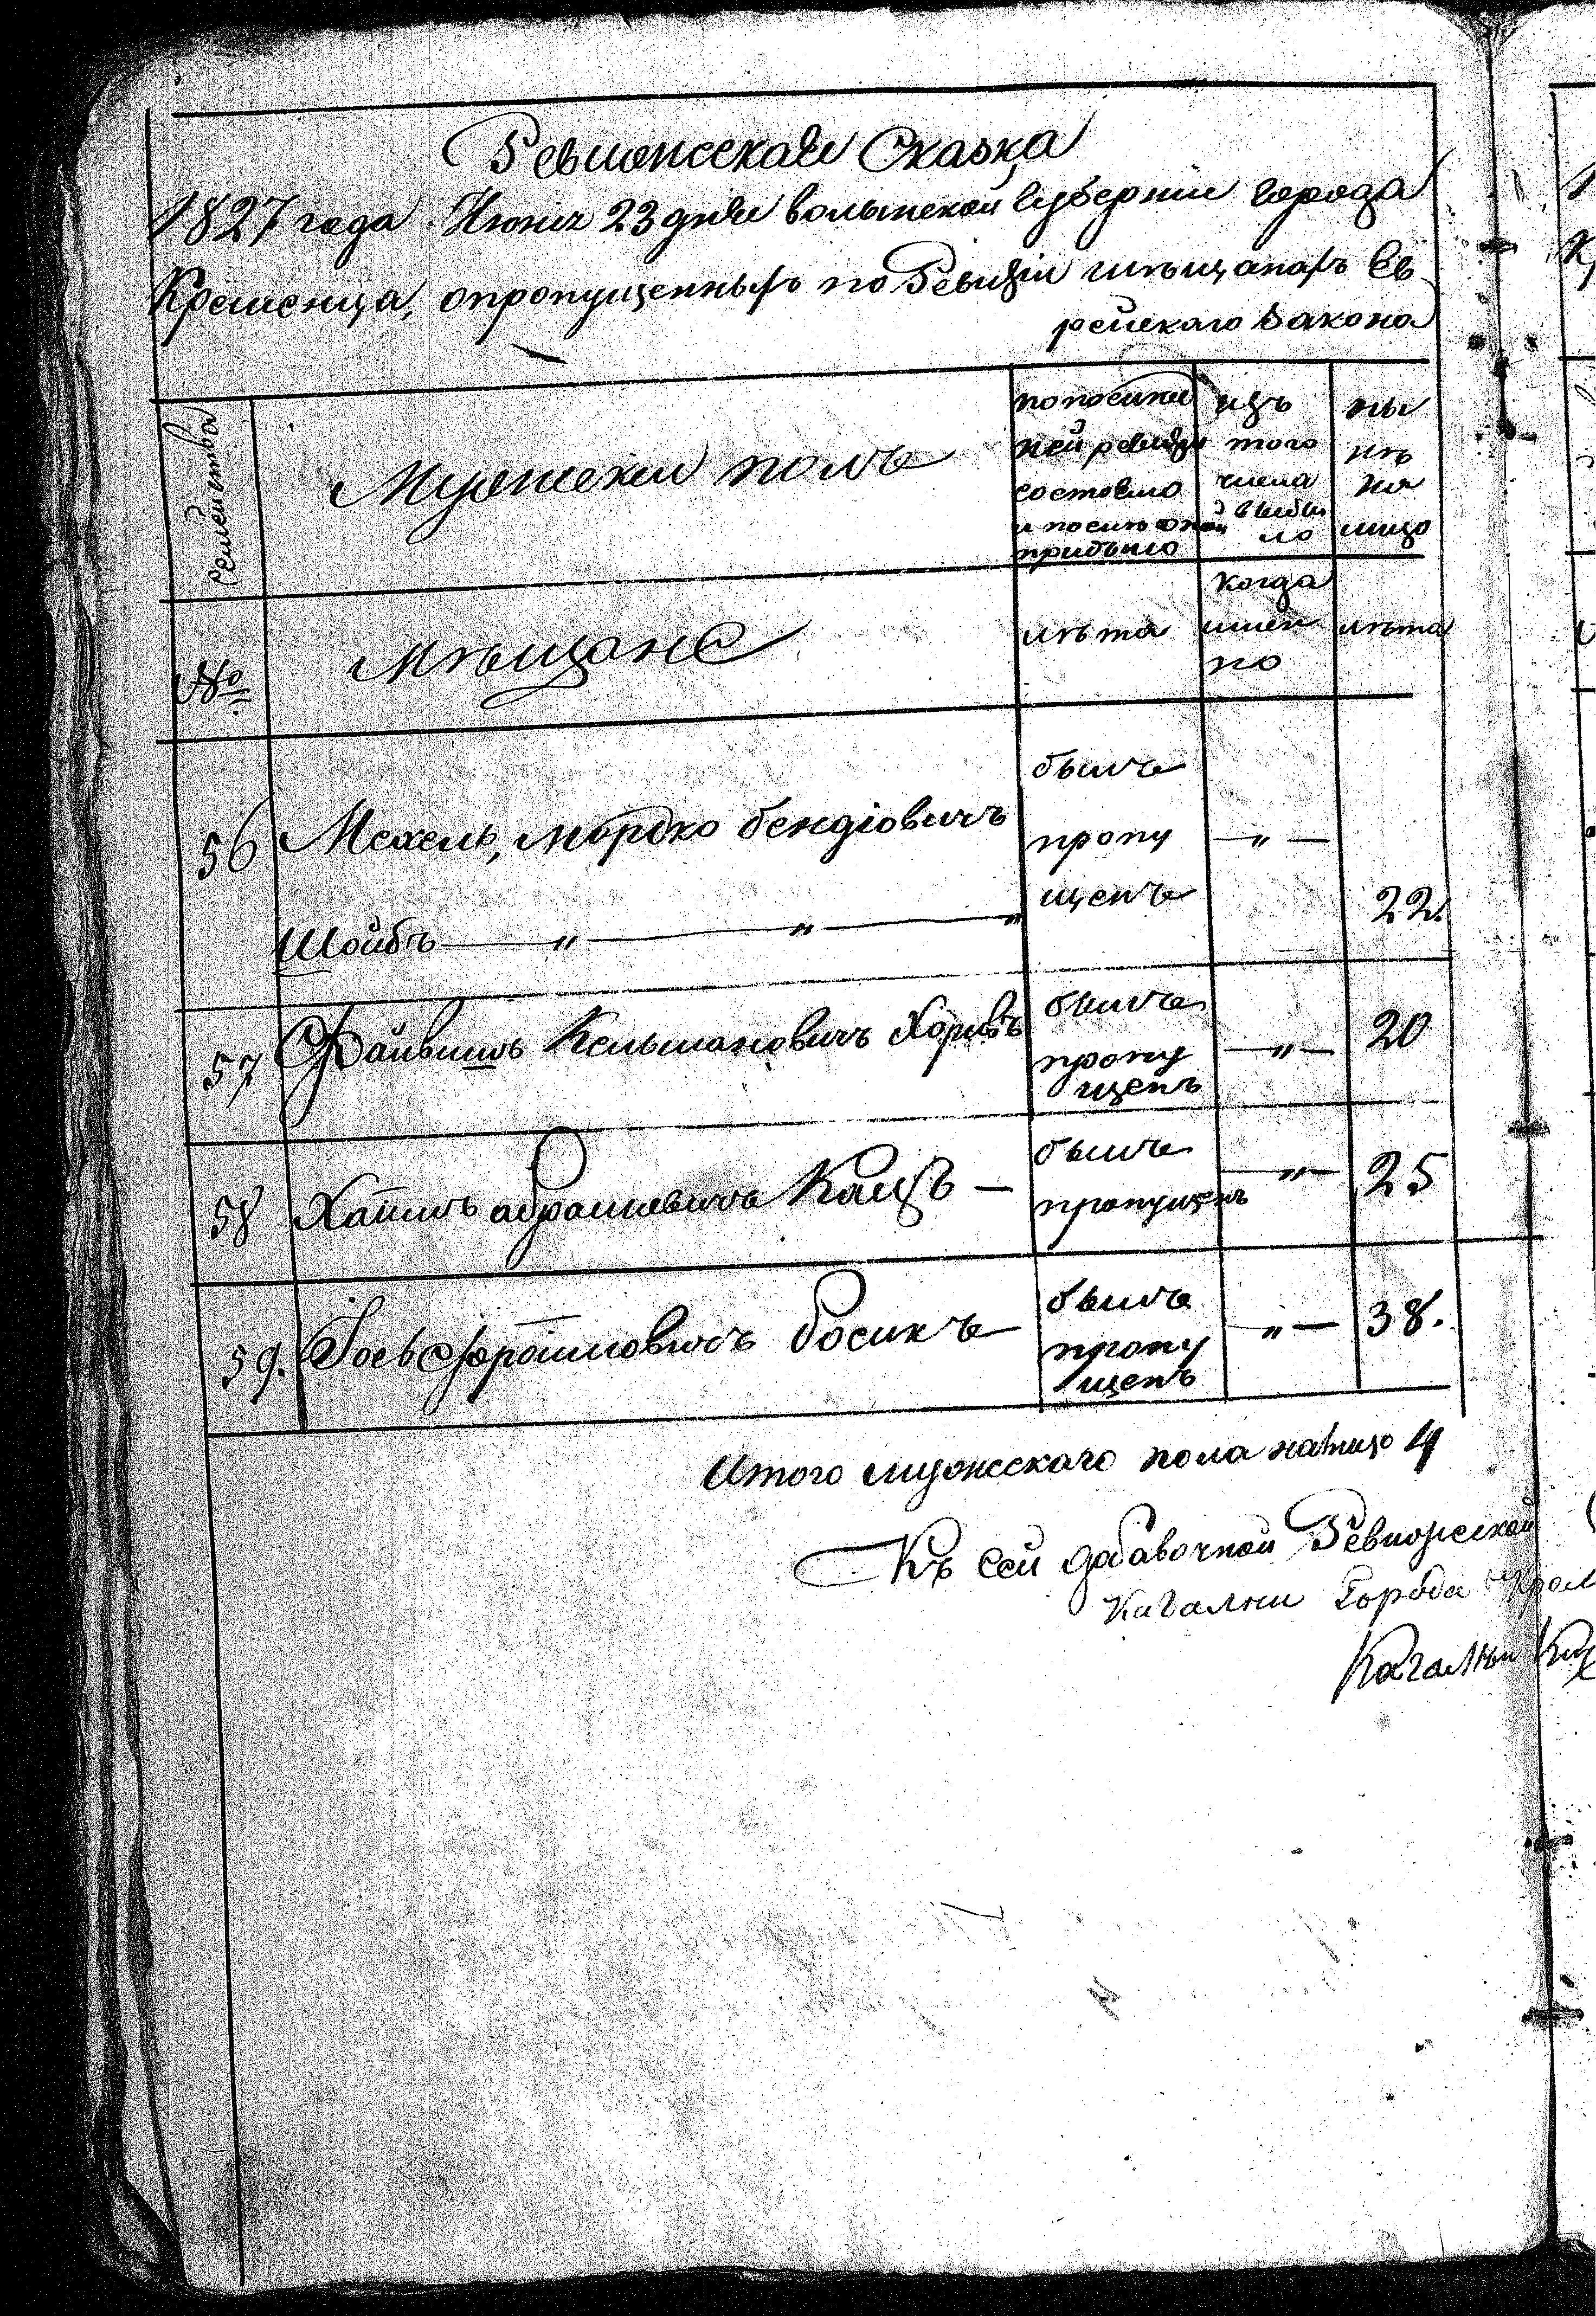 Ревижсская Сказка
1827 года Июня 23 дня волынской Губернии города
Кременца, опропущенныхъ по Ревизіи мѣщанахъ Ев
рейскаго Закона
Семейства
Мужескій полъ
по послѣд
ней ревизіи
состояло
и послѣ оной
прибыло
изъ
того
числа
выбы
ло
ны
нѣ
на
лицо
№
Мѣщане
лѣта
когда
имен
но
лѣта
56
Мехель, мордко бендіовичъ
Шойбъ — „ — „ — „
былъ
пропу
щенъ
— „ —
22.
57
Файвишъ Кельмановичъ Хоривъ
былъ
пропу
щенъ
— „ —
20
58
Хаимъ абрамовичъ Кацъ —
былъ
пропущенъ
— „ —
25
59.
Іось Фроимовичъ босикъ
былъ
пропу
щенъ
„ —
38.
Итого мужескаго пола налицо 4
Къ сей добавочной Ревижской
Кагални Города Крем
Кагалны